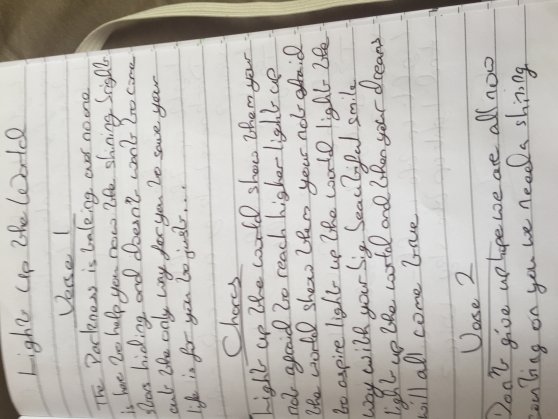 Light Up the World
Verse 1
The Darkness is taking out no one
is here to help you now the shining light
stars hiding and doesn't want to come
out the only way for you to save your
life is for you to just....
Chorus
Light up the world show them your
not afraid to reach higher light up
the world show them your not afraid
to aspire light up the world light the
way with your big beautiful smile
light up the world and then your dreams
will all come true
Verse 2
Don't give up hope we are all now
counting on you we need a shining